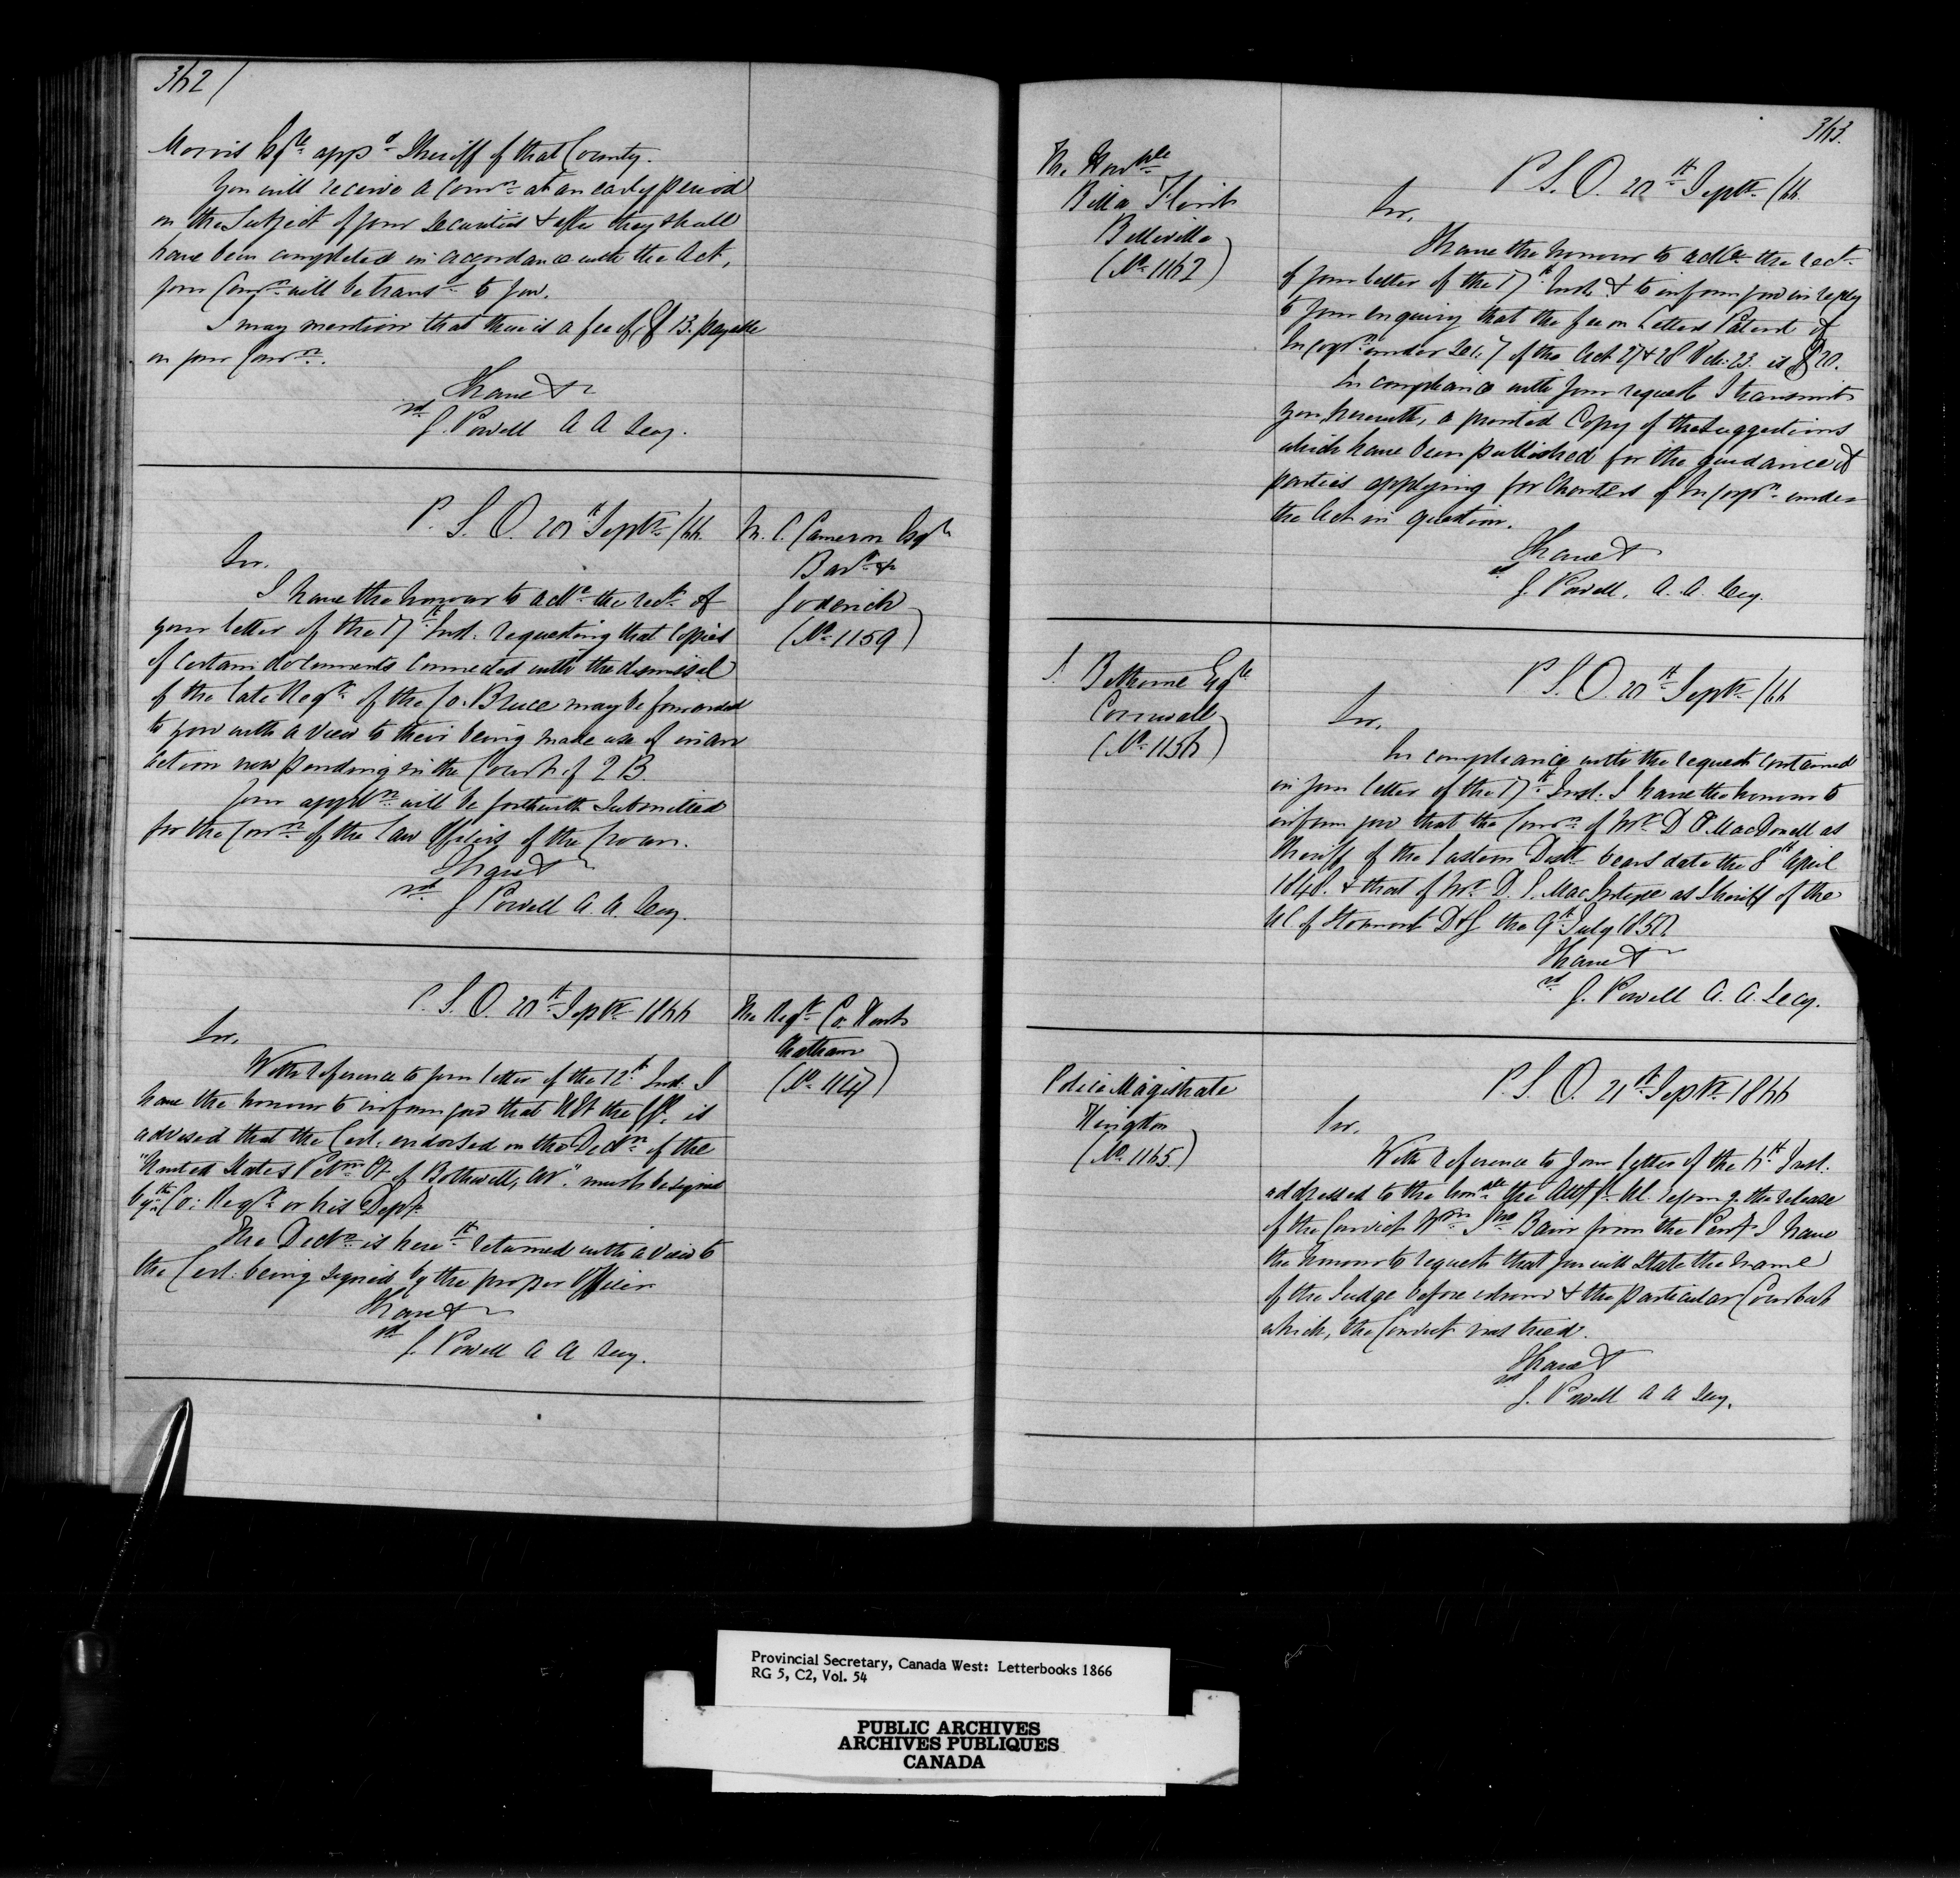 362/
Morris Esqre appd Sheriff of that County.
You will receive a comn at an early period
on the Subject of your Securities & after they shall
have been completed in accordance with the Act,
your Comn will be transd to you.
I may mention that there is a fee of $13. payable
on your Comn.
I have &c
sd
J. Powell A A Secy.
P. S. O. 20th Septr /66.
M. C. Cameron Esqre
Barr &c
Goderich
(No 1159)
Sir,
I have the honour to ackn the rect of
your letter of the 17th Inst. requesting that Copies
of certain documents connected with the dismissal
of the late Regr of the Co: Bruce may be forwarded
to you with a view to their being made use of in an
action now pending in the Court of Q B.
Your appln will be forthwith Submitted
for the Conn of the Law Officers of the Crown.
I have &c
sd
J Powell A. A. Secy.
P. S. O. 20th Septr 1866
The Regr Co. Kent
Chatham
(No 1147)
Sir,
With reference to your letter of the 12th Inst. I
have the honour to inform you that H E the is
advised that the Cert. endorsed on the Decn of the
"United States Petm of Bothwell, CW." must be signed
by the Co: Regr or his Depy.
The Decn is herewth returned with a view to
the Cert: being signed by the proper Officer
I have &c
sd
J. Powell A A Secy.
363.
The Honble
Billa Flint
Belleville
(No 1162)
P. S. O. 20th Septr /66.
Sir,
I have the honour to ackn the rect
of your letter of the 17th Inst. & to inform you in reply
to your enquiry that the fee on Letters Patent of
Incorpn under Sec. 7 of the Act 27 & 28 Vic: 23. is $20.
In compliance with your request I transmit
you herewith, a printed Copy of the Suggestions
which have been published for the guidance of
parties applying for Charters of Incorpn under
the Act in question.
I have &c
sd
J. Powell. A. A. Secy.
J. Bethune Esqre
Cornwall
(No 1156)
P. S. O. 20th Septr /66
Sir,
In compliance with the request contained
in your letter of the 17th Inst. I have the honour to
inform you that the Comn of Mr D. MacDonell as
Sheriff of the Eastern Distt bears date the 8th April
1848. & that of Mr D. E. MacIntyre as Sheriff of the
UC. of Stormont D&G the 9th July 1850.
I have &c
sd
J. Powell A. A. Secy.
Police Magistrate
Kingston
(No 1165.)
P. S. O. 21st Septr 1866
Sir,
With reference to your letter of the 6th Inst.
addressed to the Honble the Atty Gl UC. the release
of the Convict Wm Jno Bain from the Peny I have
the honour to request that you will State the name
of the Judge before whom & the particular Court at
which, the Convict was tried.
I have &c
sd
J. Powell A A Secy.
Provincial Secretary, Canada West: Letterbooks 1866
RG 5, C2, Vol. 54
PUBLIC ARCHIVES
ARCHIVES PUBLIQUES
CANADA